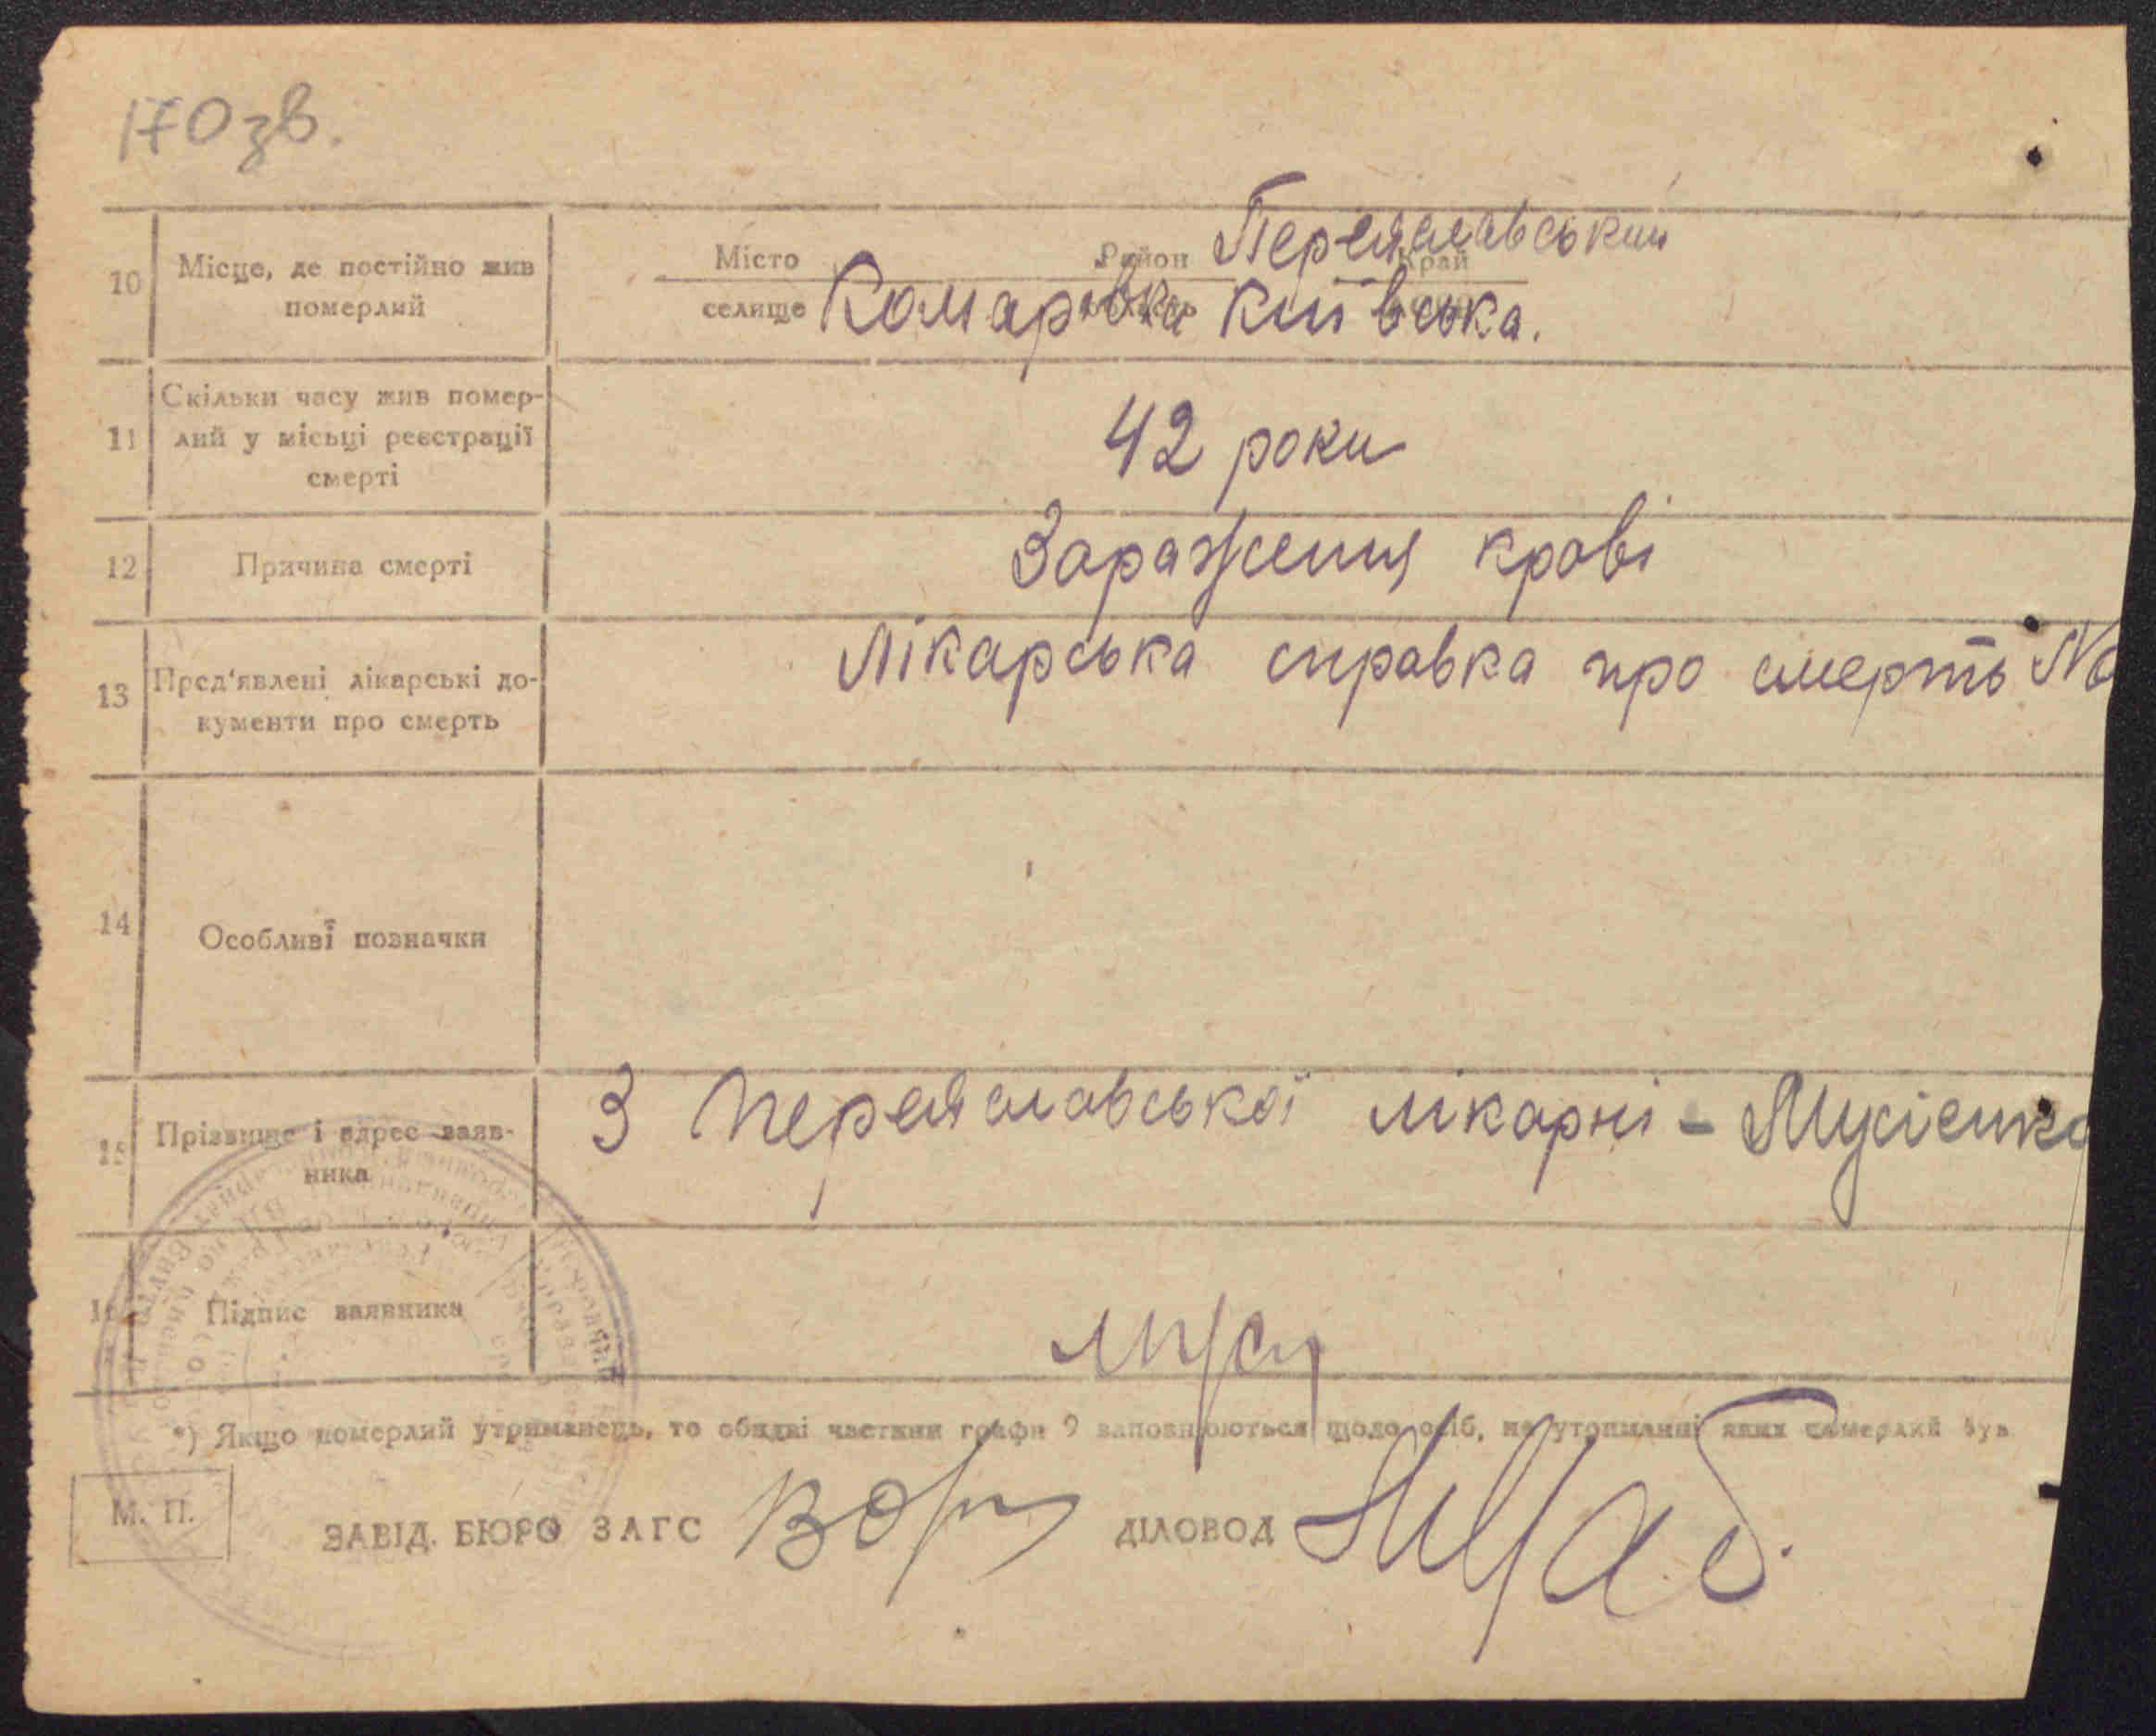 170 зв.
10 Місце, де постійно жив
померлий
Місто Район Переяславський Край
селище Комаровка Київська.
11 Скільки часу жив помер-
лий у місьці реєстрації
смерті
42 роки
12 Причина смерті
Зараження крові
13 Пред'явлені лікарські до-
кументи про смерть
Лікарська справка про смерть №
14 Особливі позначки
15 Прізвище і адрес заяв-
ника
З Переяславської лікарні - Мусієнко
16 Підпис заявника
*) Якщо померлий утриманець, то обидві частини графи 9 заповнюються щодо осіб, на утриманні яких померлий був
М. П.
ЗАВІД. БЮРО ЗАГС ДІЛОВОД